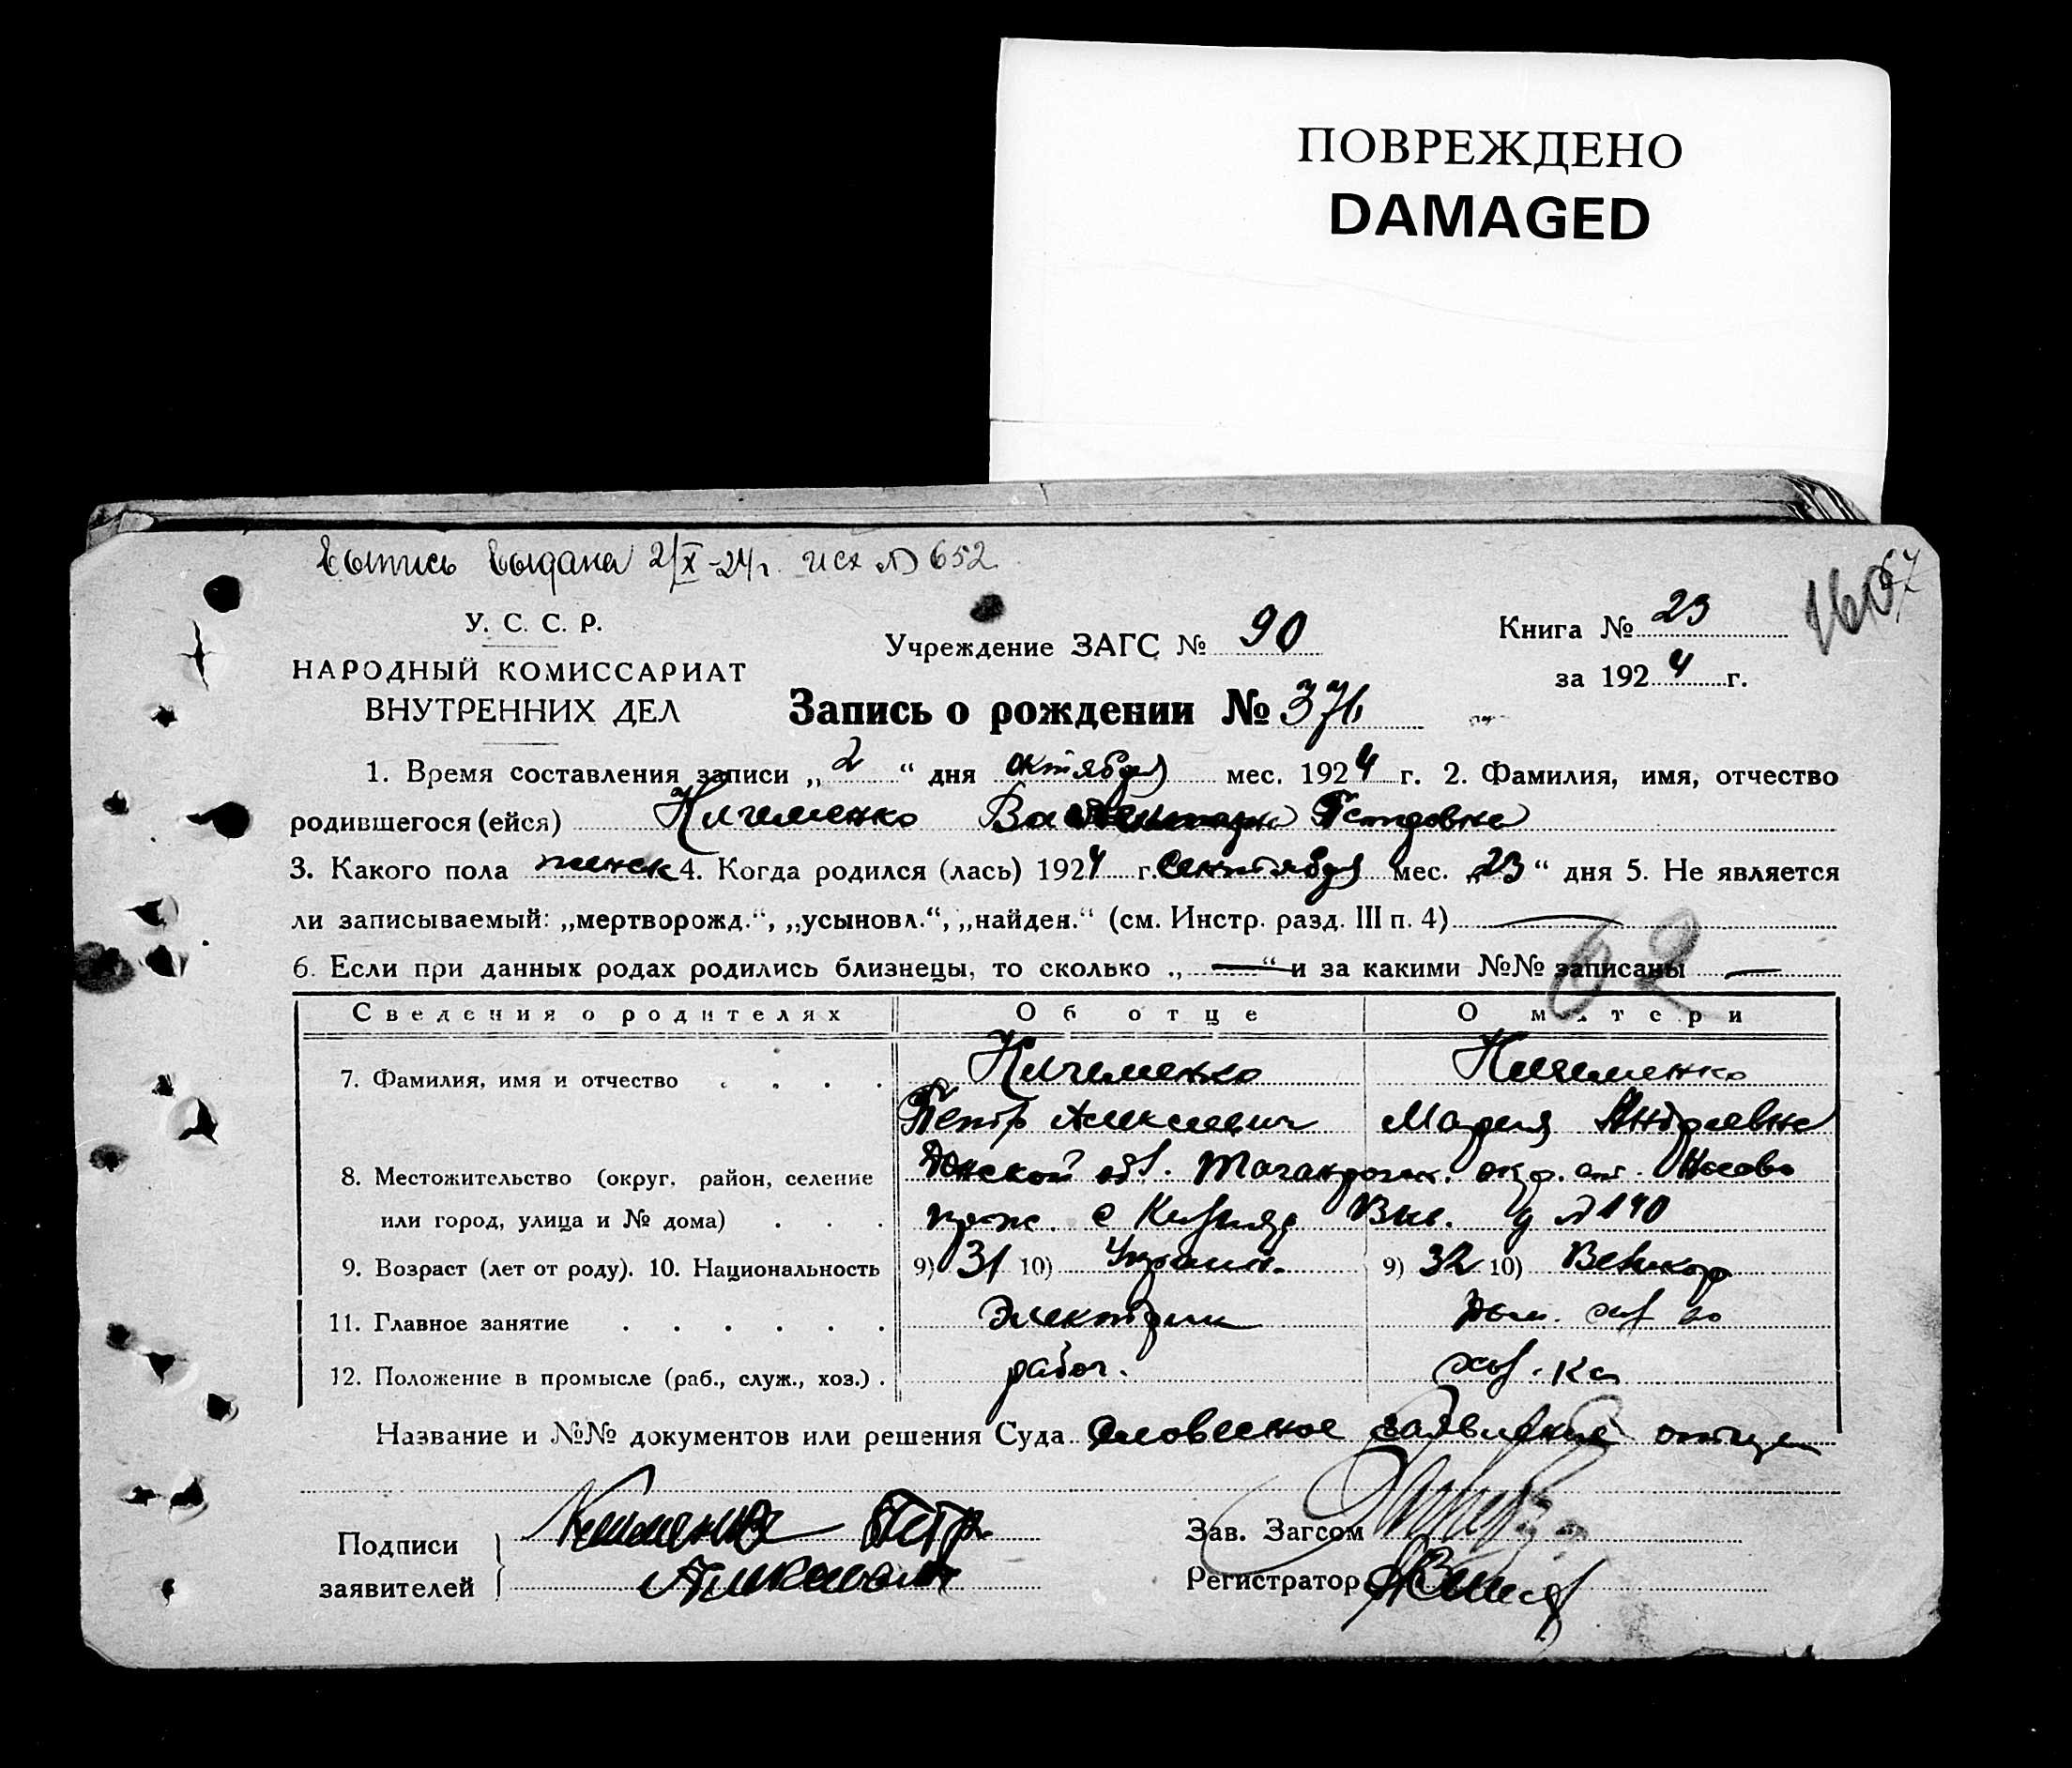 ПОВРЕЖДЕНО
DAMAGED
Выпись выдана 2/X-24г. исх № 652
67
160
У. С. С. Р.
НАРОДНЫЙ КОМИССАРИАТ
ВНУТРЕННИХ ДЕЛ
Учреждение ЗАГС № 90
Книга № 23
за 1924 г.
Запись о рождении № 376
1. Время составления записи „2“ дня октября мес. 1924 г. 2. Фамилия, имя, отчество
родившегося (ейся) Валентина Петровна
3. Какого пола женск 4. Когда родился (лась) 1924 г. сентября мес. „23“ дня 5. Не является
ли записываемый: „мертворожд.“, „усыновл.“, „найден.“ (см. Инстр. разд. III п. 4)
62
6. Если при данных родах родились близнецы, то сколько „—“ и за какими №№ записаны —
Сведения о родителях Об отце О матери
7. Фамилия, имя и отчество
Петр Алексеевич Мария Андреевна
8. Местожительство (округ, район, селение Донской обл. Таганрогск. окр. ст.
или город, улица и № дома) д № 140
9. Возраст (лет от роду). 10. Национальность 9) 31 10) Украин. 9) 32 10) Великор
11. Главное занятие Электрик Дом. хоз во
12. Положение в промысле (раб., служ., хоз.) рабоч. хоз. ка
Название и №№ документов или решения Суда словесное заявление отца
Подписи Петр
заявителей Алексеевич
Зав. Загсом
Регистратор